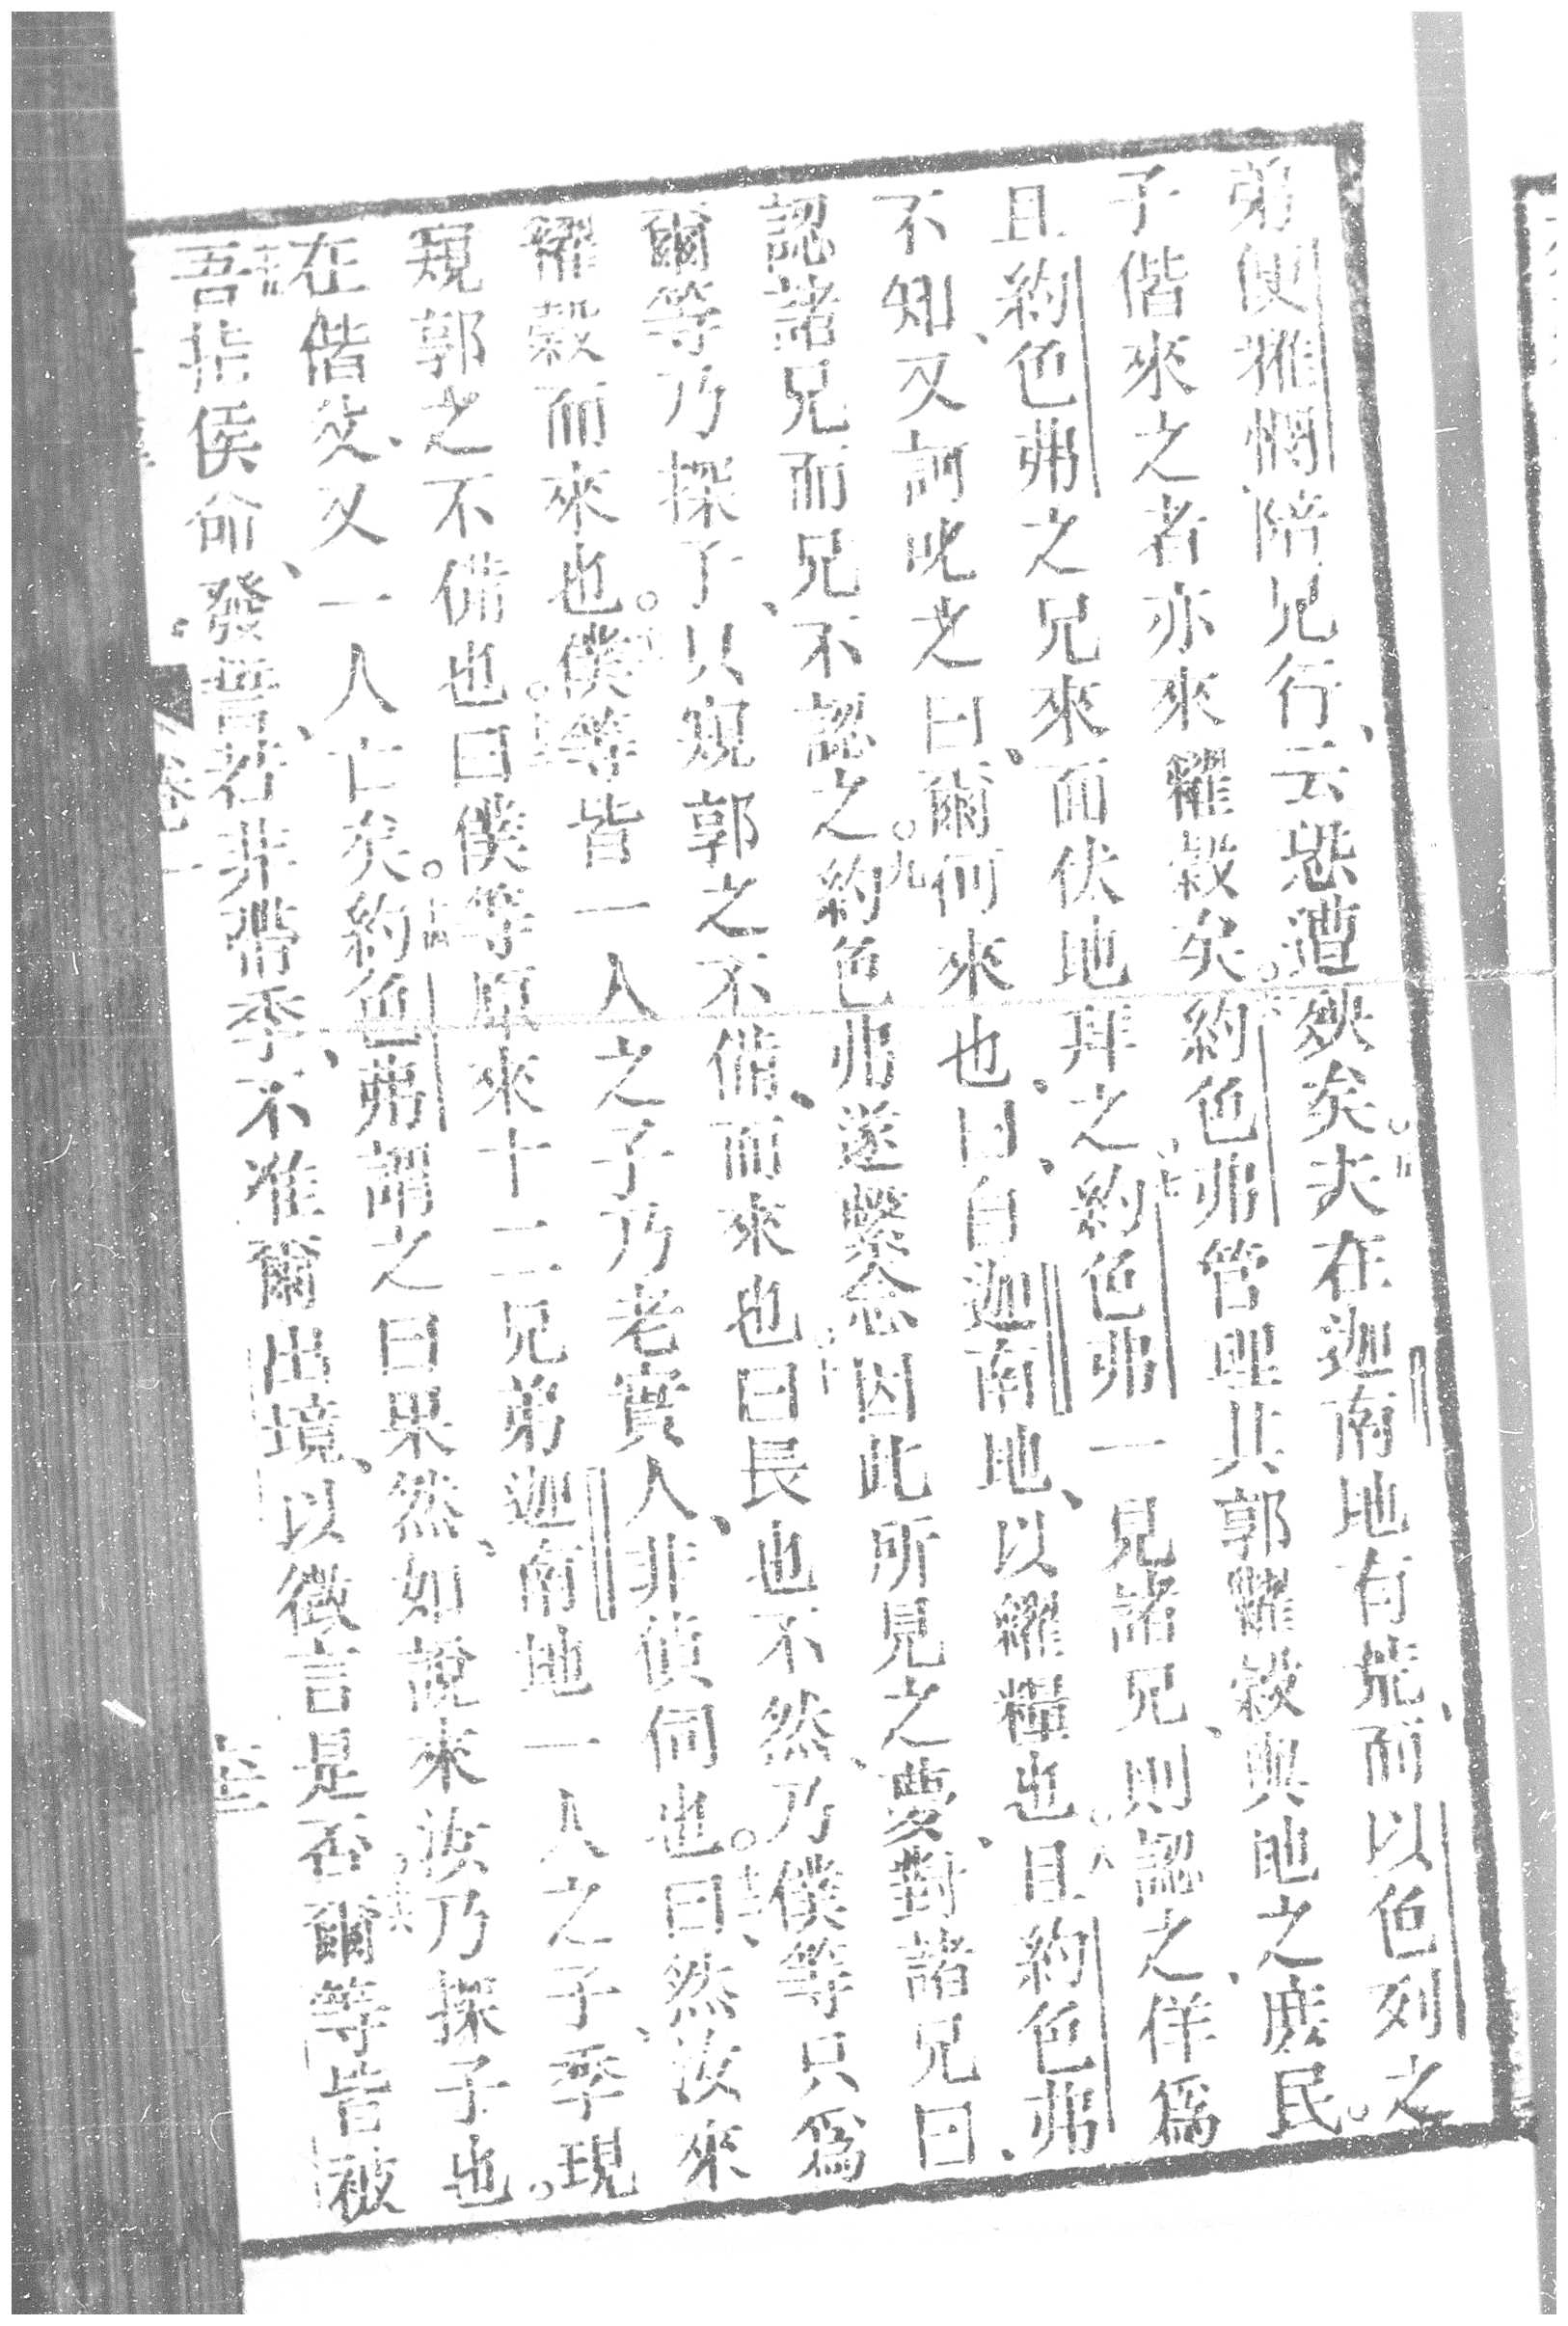 弟便雅憫陪兄行、云恐遭殃矣。五夫在迦南地有荒、而以色列之
子偕來之者亦來糴穀矣。六約色弗管理其郭糶穀與地之庶民。
且約色弗之兄來而伏地拜之、七約色弗一見諸兄、則認之、佯爲
不知、又訶叱之曰、爾何來也、曰、自迦南地、以糴糧也。八且約色弗
認諸兄而兄不認之。九約色弗遂繫念因此所見之夢、對諸兄曰、
爾等乃探子、以窺郭之不備、而來也。十曰長也不然、乃僕等只爲
糴穀而來也。十一僕等皆一人之子乃老實人、非偵伺也。十二曰然、汝來
窺郭之不備也。十三曰僕等原來十二兄弟迦南地一人之子、季現
在偕父、又一人亡矣。十四約色弗謂之曰果然、如說來汝乃探子也。
十五吾指侯命、發誓、若非帶季、不准爾出境、以徵言是否。十六爾等皆被